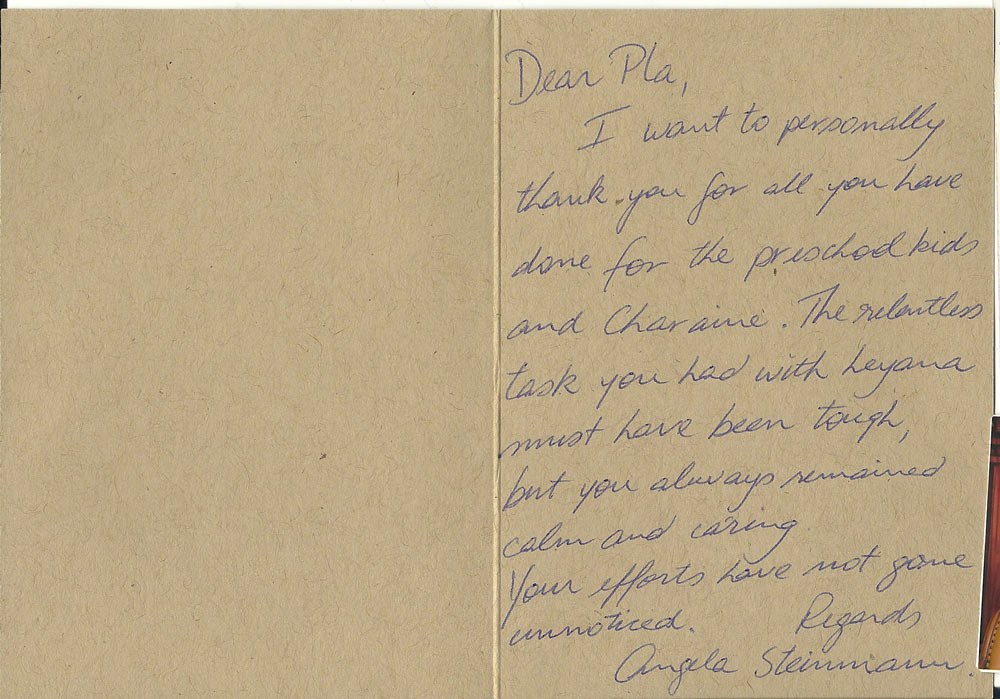 Dear Pla,
I want to personally
thank you for all you have
done for the preschool kids
and Charaine. The relentless
task you had with Leyana
must have been tough,
but you always remained
calm and caring.
Your efforts have not gone
unnoticed. Regards
Angela Steinmann.